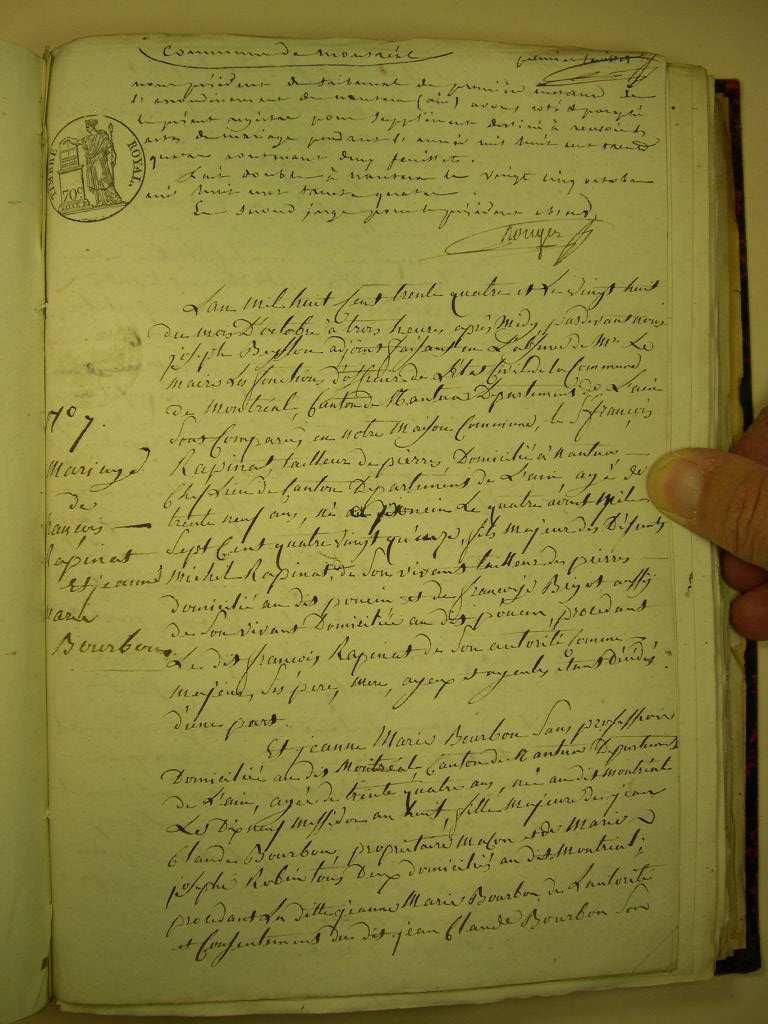 Commune de Montréal
premier feuillet
nous président du tribunal de première instance de
l'arrondissement de nantua (ain) avons coté & paraphé
le présent registre pour supplément destiné à recevoir les
actes de mariage pendant l'année mil huit cent trente
quatre contenant deux feuillets.
Fait double à nantua le vingt cinq octobre
mil huit cent trente quatre
Le Second juge pour le président
Rouyer
TIMBRE ROYAL
70c
L'an mil huit Cent trente quatre et Le vingt huit
du mois D'octobre à trois heures après Midi, pardevant nous
joseph adjoint faisant en L'absence de Mr Le
Maire Les fonctions d'officier de L'Etat Civil de la Commune
de Montréal, Canton de Nantua Département de L'ain
Sont Comparûs en notre Maison Commune, le S. françois
Rapinat, tailleur de pierre, Domicilié à Nantua
Chef Lieu de Canton Département de L'ain agé de
trente neuf ans, né a poncin Le quatre avril Mil
Sept Cent quatre vingt quinze, fils majeur des Défunts
Michel Rapinat, de Son vivant tailleur des pierres
domicilié au dit poncin et de françoise Bigot aussi
de Son vivant Domiciliée au dit poncin, procédant
Le dit françois Rapinat de Son autorité Comme
Majeur, Ses père, mere, ayeux et ayeules étant Décédés
d'une part.
N° 7.
Mariage
de
françois
Rapinat
et jeanne
Marie
Bourbon
Et jeanne Marie Bourbon Sans profession
Domiciliée au dit Montréal, Canton de Nantua Département
de L'ain, agée de trente quatre ans, née au dit Montréal
Les Dix neuf Messidor an huit, fille Majeure de jean
Claude Bourbon, propriétaire Maçon et de Marie
josephe Robin tous Deux domiciliés au dit Montréal;
procédant La ditte jeanne Marie Bourbon de L'autorité
et Consentement du dit jean Claude Bourbon Son